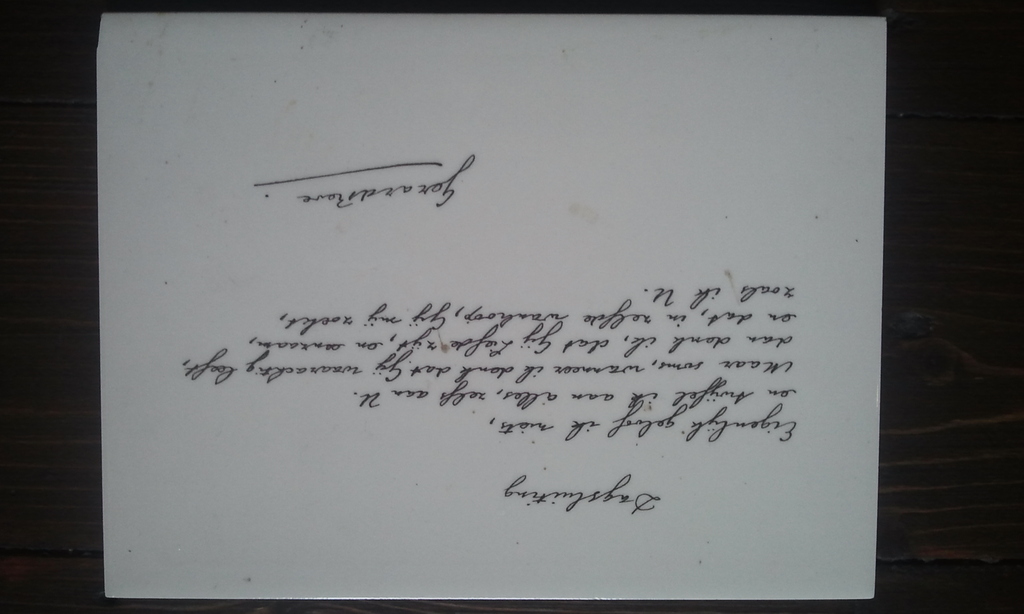 Dagsluiting
Eigenlijk geloof ik niets,
en twijfel ik aan alles, zelfs aan U.
Maar soms, wanneer ik denk dat Gij waarachtig leeft,
dan denk ik, dat Gij Liefde zijt, en eenzaam,
en dat, in zelfde wanhoop, Gij mij zoekt,
zoals ik U.
Gerard Reve.